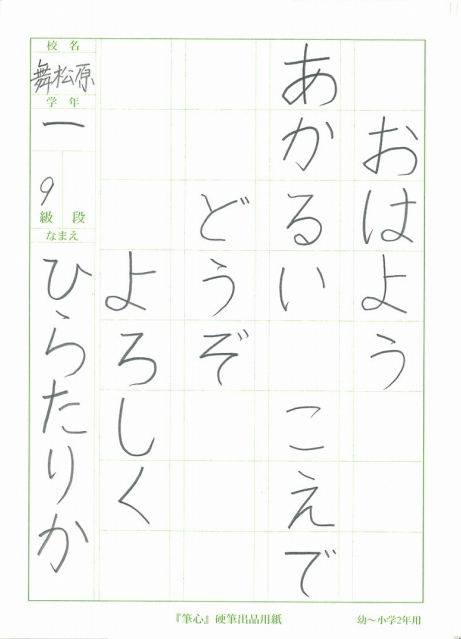 おはよう
あかるい　こえで
どうぞ
よろしく
校名
舞松原
学年
一
9
級　段
なまえ
ひらたりか
『筆心』硬筆出品用紙
幼～小学2年用